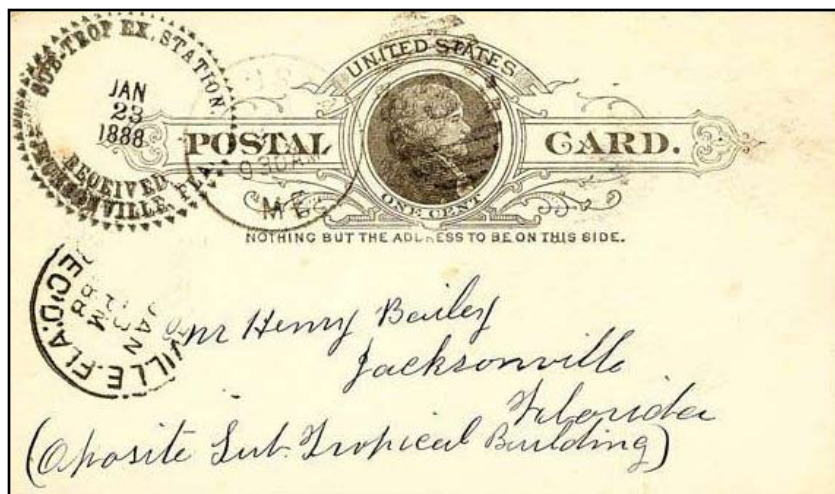 SUB-TROP EX. STATION.
JAN
23
1888
RECEIVED
JACKSONVILLE, FLA.
UNITED STATES
POSTAL CARD.
ONE CENT
930AM
ME
NOTHING BUT THE ADDRESS TO BE ON THIS SIDE.
VILLE. FLA.
REC'D.
JAN
Mr Henry Bailey
Jacksonville
Florida
(Oposite Sub. Tropical Building)